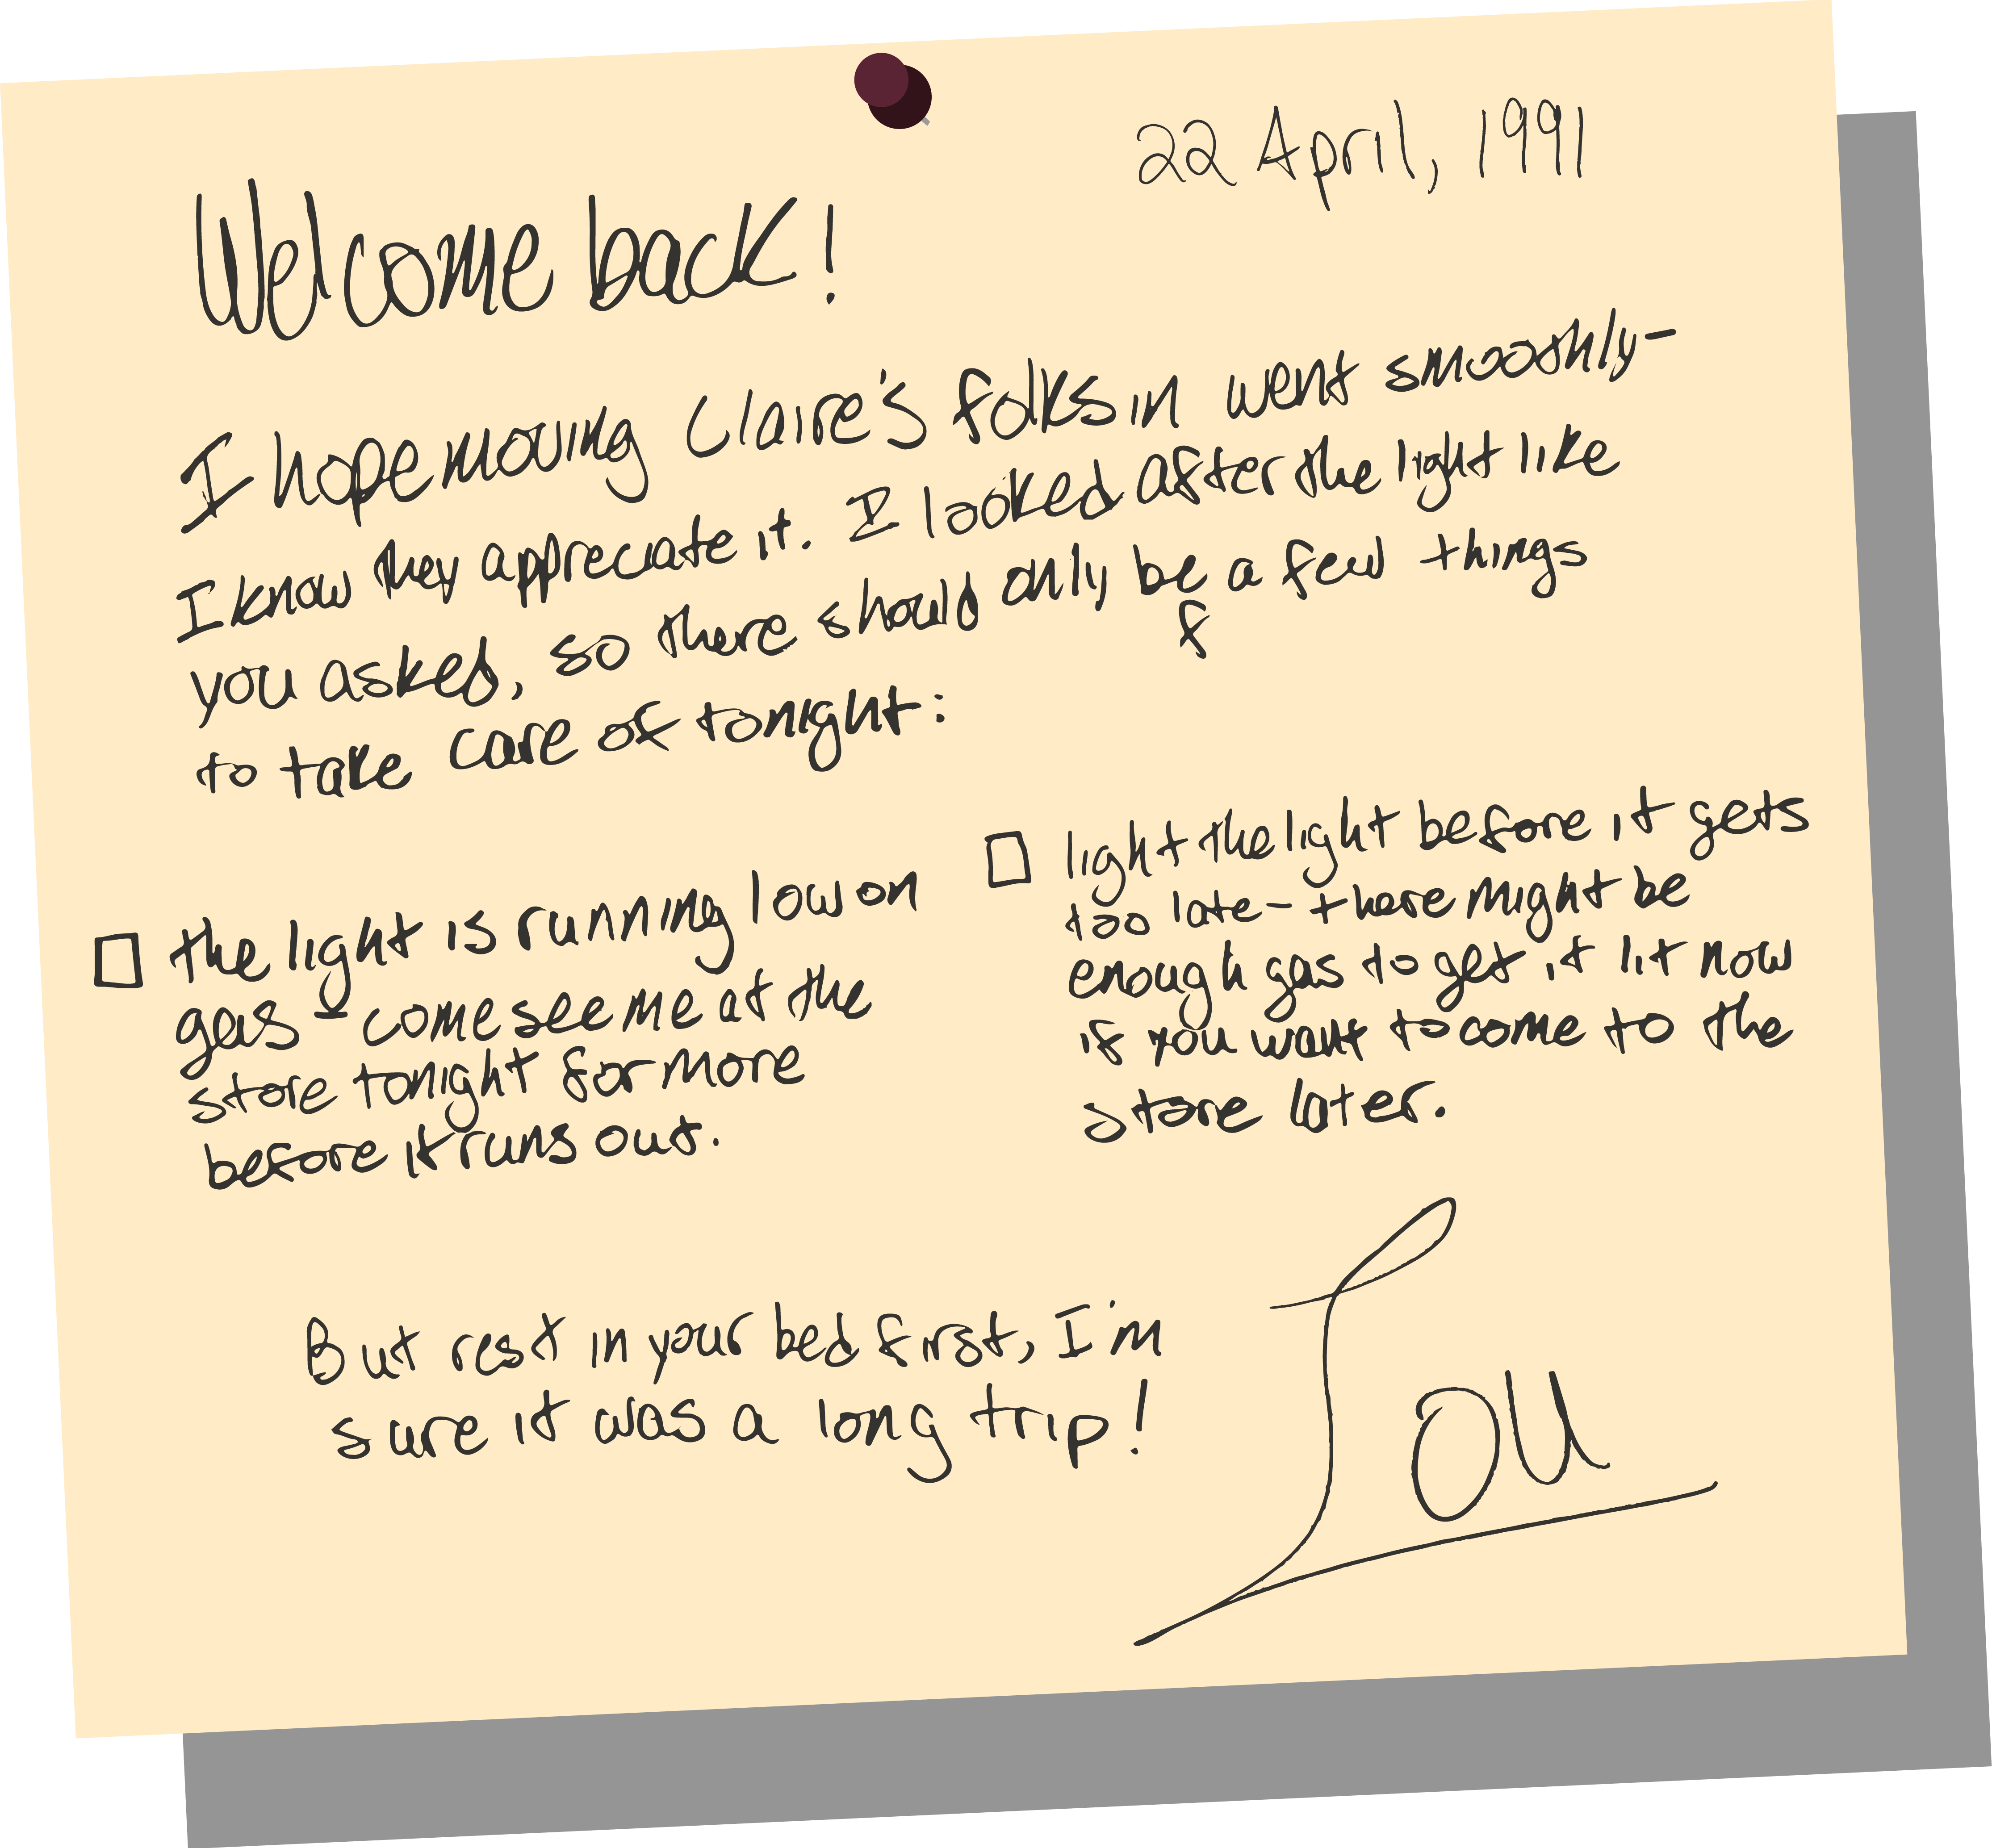 22 April, 1991
Welcome back!
I hope moving Claire's folks in went smoothly-
I know they appreciate it. I looked after the light like
you asked, so there should only be a few things
to take care of tonight:
the light is running low on
gas - come see me at the
store tonight for more
before it runs out.
light the light before it gets
too late - there might be
enough gas to get it lit now
if you want to come to the
store later.
But rest in your bed first, I'm
sure it was a long trip!
Lou